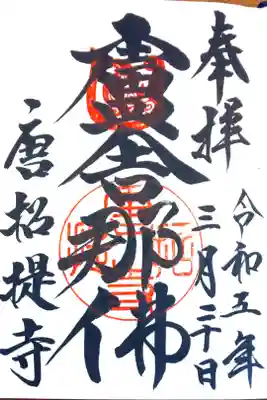 奉拝
令和五年
三月三十日
盧舎那佛
唐招提寺